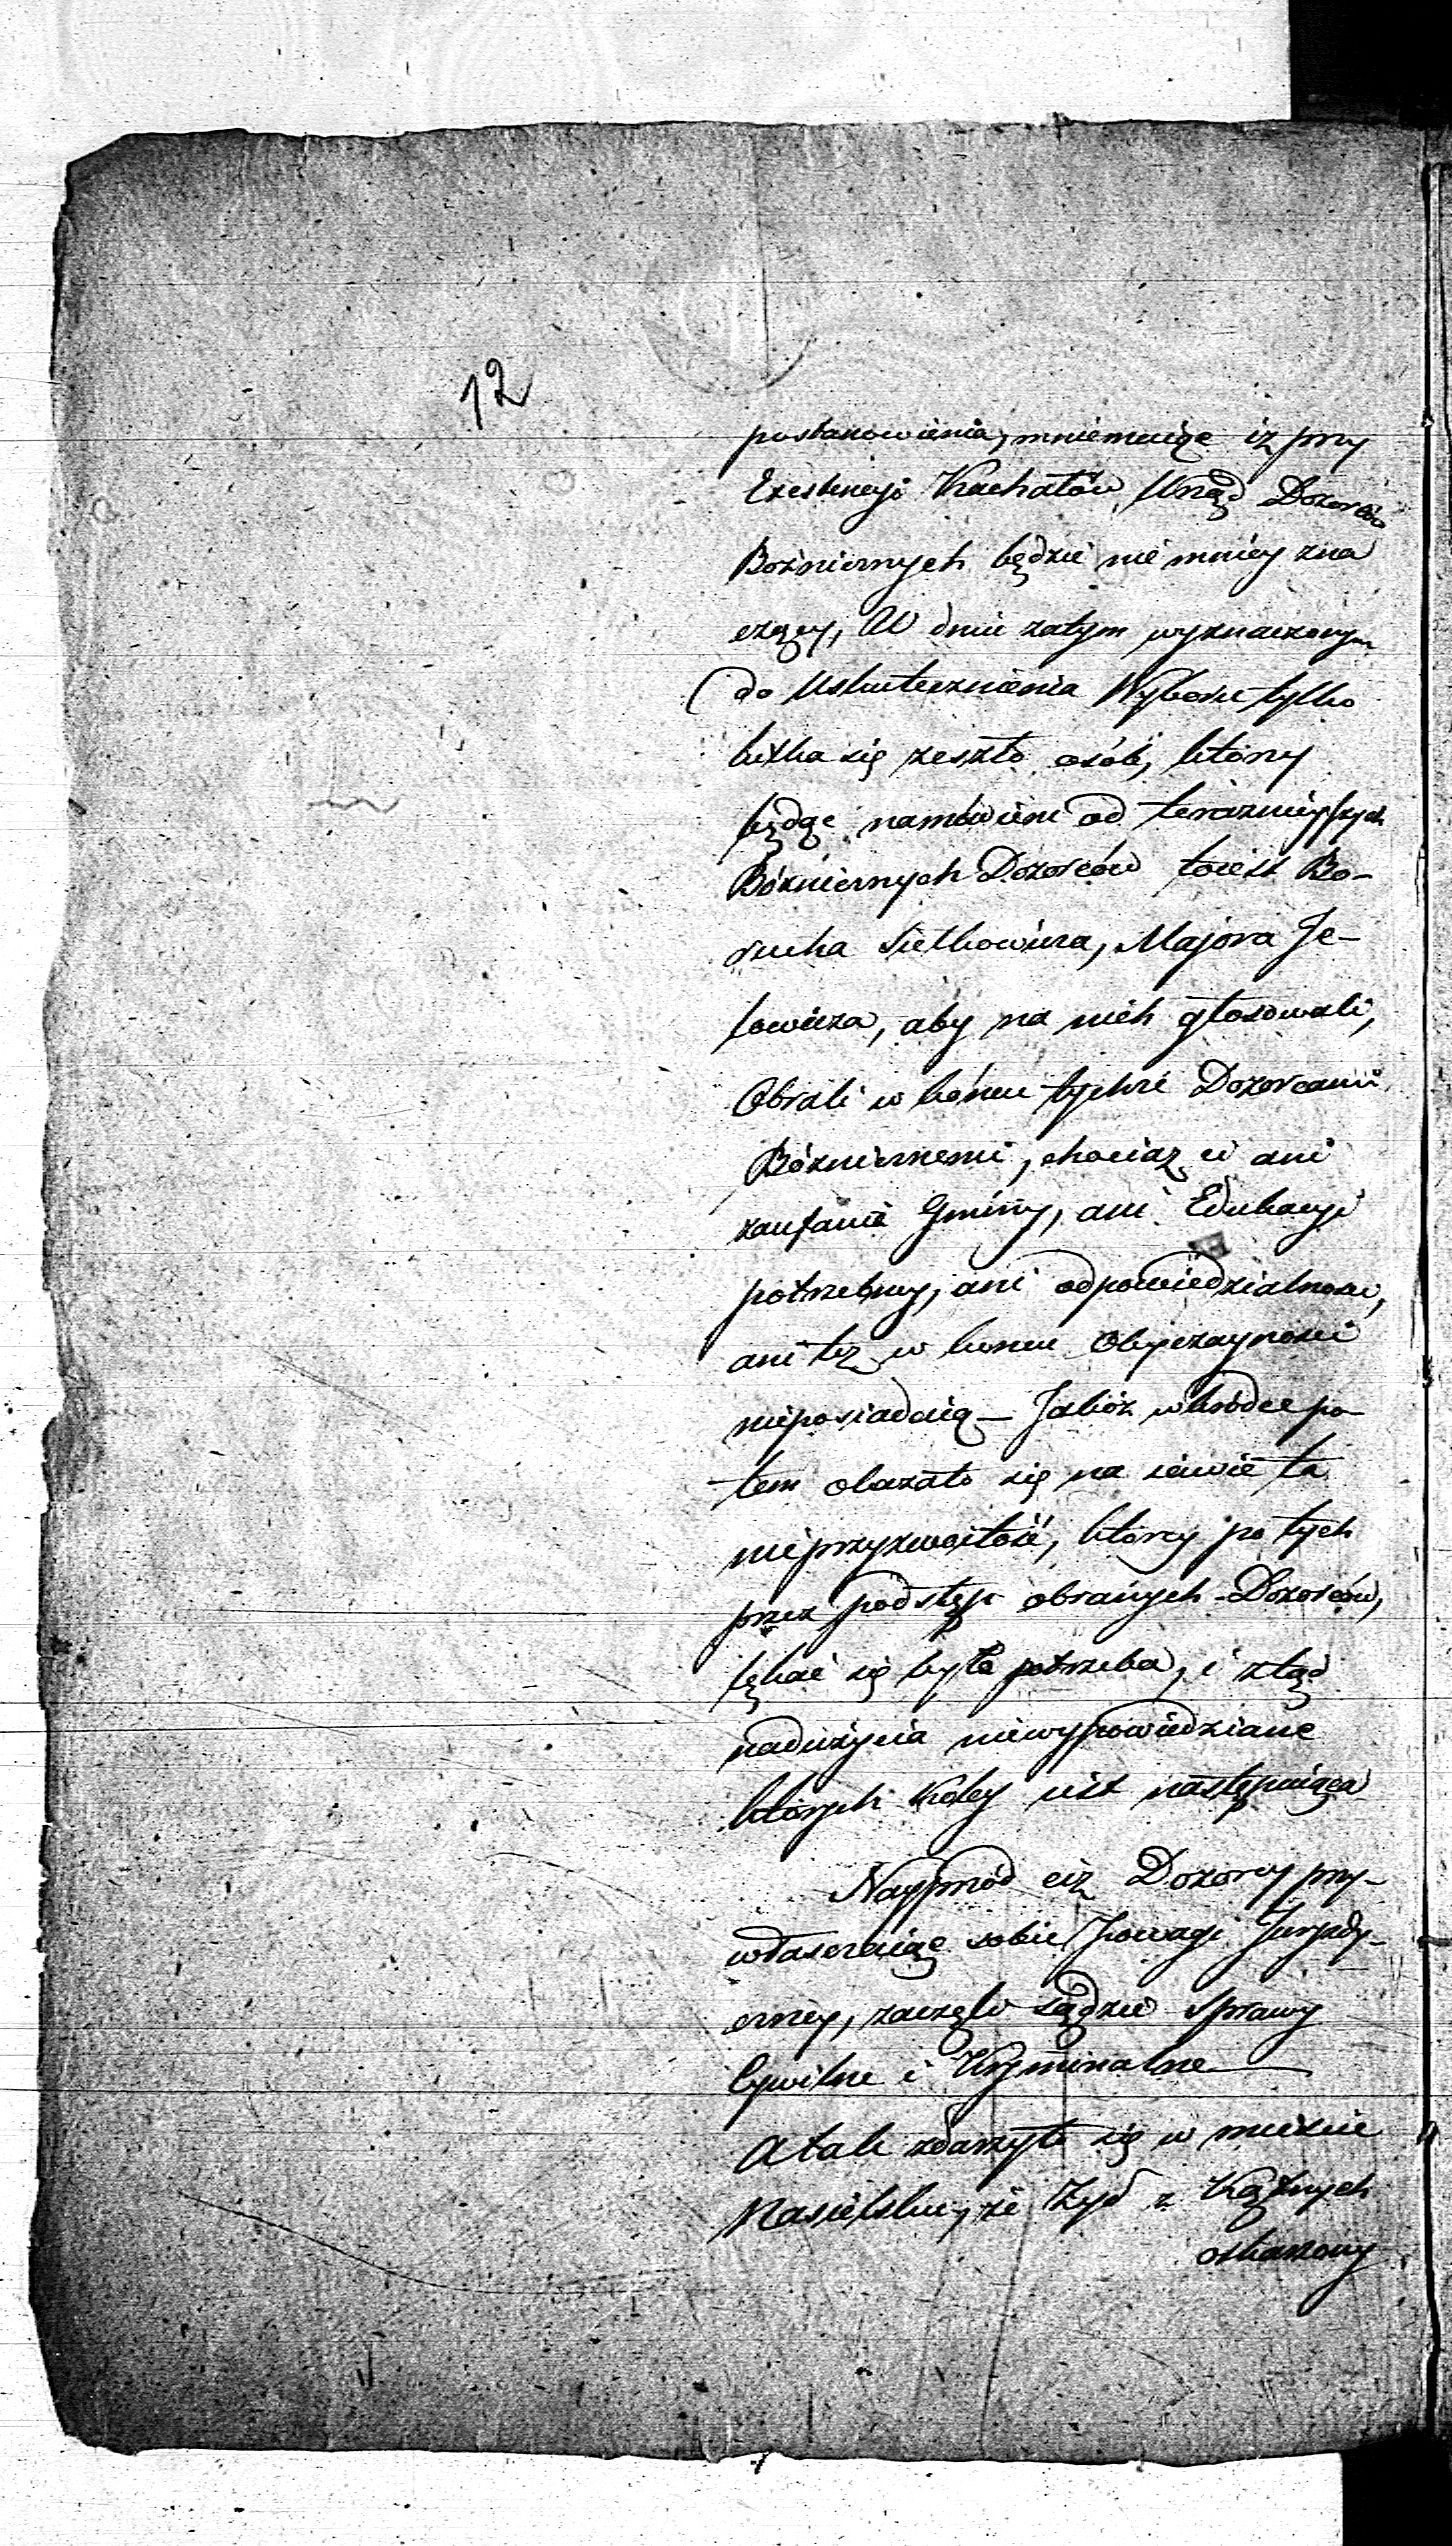 12
postanowienia, mniemaiąc iż przy
Exestencyi Kachałów Urząd Dozorców
Bożnicznych będzie nié mniey zna
czący, W dniu zatym wyznaczonym
do Uskutecznienia Wyboru tylko
kilka się zeszło osób, którzy
będąc namówieni od terazniejszych
Bóżnicznych Dozorców toiest Bo-
rucha Sielkowicza, Majora Je-
kowicza, aby na nich głosowali,
Obrali w końcu tychże Dozorcami
Bóżnicznemi, chociaż ci ani
zaufania Gminy, ani Edukacyi
potrzebney, ani odpowiedzialnosci,
ani też w koncu Obyczaynosci
nieposiadaią — Jakóż wkrótce po-
tem okazało się na iawie ta
nieprzyzwoitość, którey po tych
przez podstęp obranych Dozorców,
lękać się była potrzeba, i ztąd
nadużycia niewypowiedziane
których Koley iest następuiąca
Nayprzód ciż Dozorcy przy-
właszczaiąc sobie Powagi Juryzdy-
czney, zaczęli sądzić Sprawy
Cywilne i Kryminalne —
A tak zdarzyło się w mieście
Nasielsku, że Żyd z
oskarzony